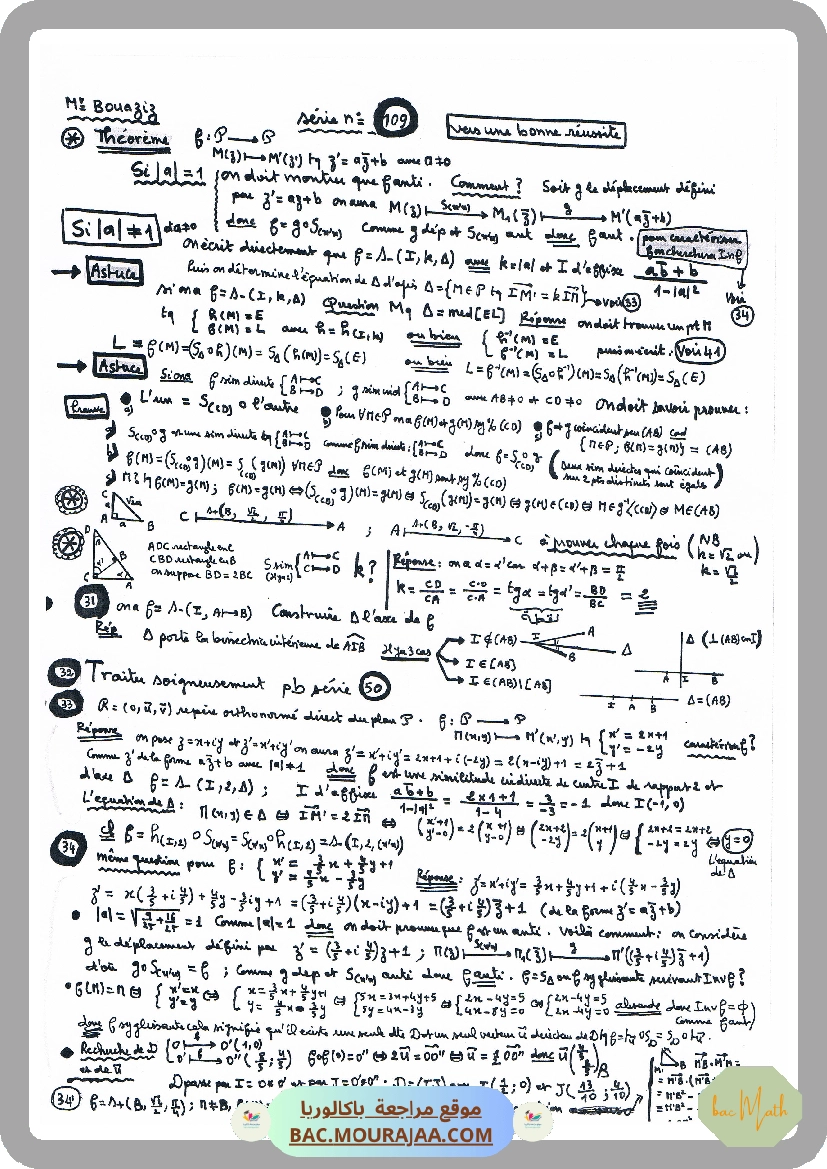 Mr Bouaziz
série n° 109
vers une bonne réussite
* Théorème f: P → P
M(z) ↦ M'(z') tq z' = az̄+b avec a≠0
Si |a|=1 { on doit montrer que f anti. Comment? Soit g le déplacement défini
par z'=az+b on aura M(z) ↦ M₁(z̄) ↦ M'(az̄+b)
donc f=g∘S(x'x) comme g dép et S(x'x) anti donc f anti.
pour caractériser f on cherchera Inv f
Si |a|≠1 et a≠0
on écrit directement que f=S-(I,k,Δ) avec k=|a| et I d'affixe (ab̄+b)/(1-|a|²)
Puis on détermine l'équation de Δ d'après Δ={M∈P tq IM'=kIM} → voir 33
voir 34
→ Astuce si on a f=S-(I,k,Δ) Question Mq Δ=med[EL] Réponse on doit trouver un pt M
tq { h(M)=E f(M)=L avec h=h(I,k) ou bien { h⁻¹(M)=E f⁻¹(M)=L puis on écrit. Voir 41
L=f(M)=(SΔ∘h)(M)=SΔ(h(M))=SΔ(E) ou bien L=f⁻¹(M)=(SΔ∘h⁻¹)(M)=SΔ(h⁻¹(M))=SΔ(E)
→ Astuce Si on a f sim directe { A↦C B↦D ; g sim ind { A↦C B↦D avec AB≠0 et CD≠0 on doit savoir prouver:
L'un = S(CD) ∘ l'autre
Pour ∀M∈P on a f(M) et g(M) sy % (CD)
f et g coincident sur (AB) cad
{M∈P; f(M)=g(M)} = (AB)
Preuve
S(CD)∘g est une sim directe tq { A↦C B↦D comme f sim directe: { A↦C B↦D donc f=S(CD)∘g
(deux sim directes qui coincident sur 2 pts distincts sont égales)
f(M)=(S(CD)∘g)(M)=S(CD)(g(M)) ∀M∈P donc f(M) et g(M) sont sy % (CD)
f(M)=g(M) ⇔ (S(CD)∘g)(M)=g(M) ⇔ S(CD)(g(M))=g(M) ⇔ g(M)∈(CD) ⇔ M∈g⁻¹((CD)) ⇔ M∈(AB)
C A B a
C S+(B, √2, π/4) → A ; A S+(B, √2, -π/4) → C à prouver chaque fois (NB k=√2 ou k=√2/2)
ADC rectangle en C
CBD rectangle en B
on suppose BD=2BC
S sim { A↦C C↦D k?
Réponse: on a α=α' car α+β=α'+β=π/2
k = CD/CA = CD/CA = tgα = tgα' = BD/BC = 2
31 on a f=S-(I, A↦B) Construire Δ l'axe de f
Rép Δ porte la bissectrice intérieure de AIB Il y a 3 cas
I∉(AB)
I∈[AB]
I∈(AB)\[AB]
Δ (⊥(AB) en I)
Δ=(AB)
32 Traiter soigneusement pb série 50
33 R=(O,u,v) repère orthonormé direct du plan P. f: P → P
M(x,y) ↦ M'(x',y') tq { x'=2x+1 y'=-2y caractériser f?
Réponse on pose z=x+iy et z'=x'+iy' on aura z'=x'+iy'=2x+1+i(-2y)=2(x-iy)+1=2z̄+1
Comme z' de la forme az̄+b avec |a|≠1 donc f est une similitude indirecte de centre I de rapport 2 et
d'axe Δ f=S-(I,2,Δ); I d'affixe (ab̄+b)/(1-|a|²) = (2×1+1)/(1-4) = 3/-3 = -1 donc I(-1,0)
L'equation de Δ: M(x,y)∈Δ ⇔ IM'=2IM ⇔ (x'+1 y'-0)=2(x+1 y-0) ⇔ (2x+2 -2y)=2(x+1 y) ⇔ { 2x+2=2x+2 -2y=2y ⇔ y=0
L'equation de Δ
cl f=h(I,2)∘S(x'x)=S(x'x)∘h(I,2)=S-(I,2,(x'x))
34 même question pour f: { x'=3/5x+4/5y+1 y'=4/5x-3/5y
Réponse: z'=x'+iy'=3/5x+4/5y+1+i(4/5x-3/5y)
z'=x(3/5+i4/5)+4/5y-3/5iy+1=(3/5+i4/5)(x-iy)+1=(3/5+i4/5)z̄+1 (de la forme z'=az̄+b)
|a|=√(9/25+16/25)=1 Comme |a|=1 donc on doit prouver que f est un anti. Voilà comment: on considère
g le déplacement défini par z'=(3/5+i4/5)z+1; M(z) ↦ M₁(z̄) ↦ M'((3/5+i4/5)z̄+1)
d'où g∘S(x'x)=f; Comme g dep et S(x'x) anti donc f anti. f=SΔ ou f sy glissante suivant Inv f?
f(M)=M ⇔ { x'=x y'=y ⇔ { x=3/5x+4/5y+1 y=4/5x-3/5y ⇔ { 5x=3x+4y+5 5y=4x-3y ⇔ { 2x-4y=5 4x-8y=0 ⇔ { 2x-4y=5 2x-4y=0 absurde donc Inv f=∅
Comme f anti
donc f sy glissante cela signifie qu'il existe une seule dte D et un seul vecteur u directeur de D
Recherche de D et de u
O ↦ O'(1,0)
O' ↦ O''(8/5, 4/5) f∘f(O)=O'' ⇔ 2u=OO'' ⇔ u=½OO'' donc u(4/5, 2/5)
D passe par I=O*O' et par J=O'*O''
34'
موقع مراجعة باكالوريا
BAC.MOURAJAA.COM
bac Math